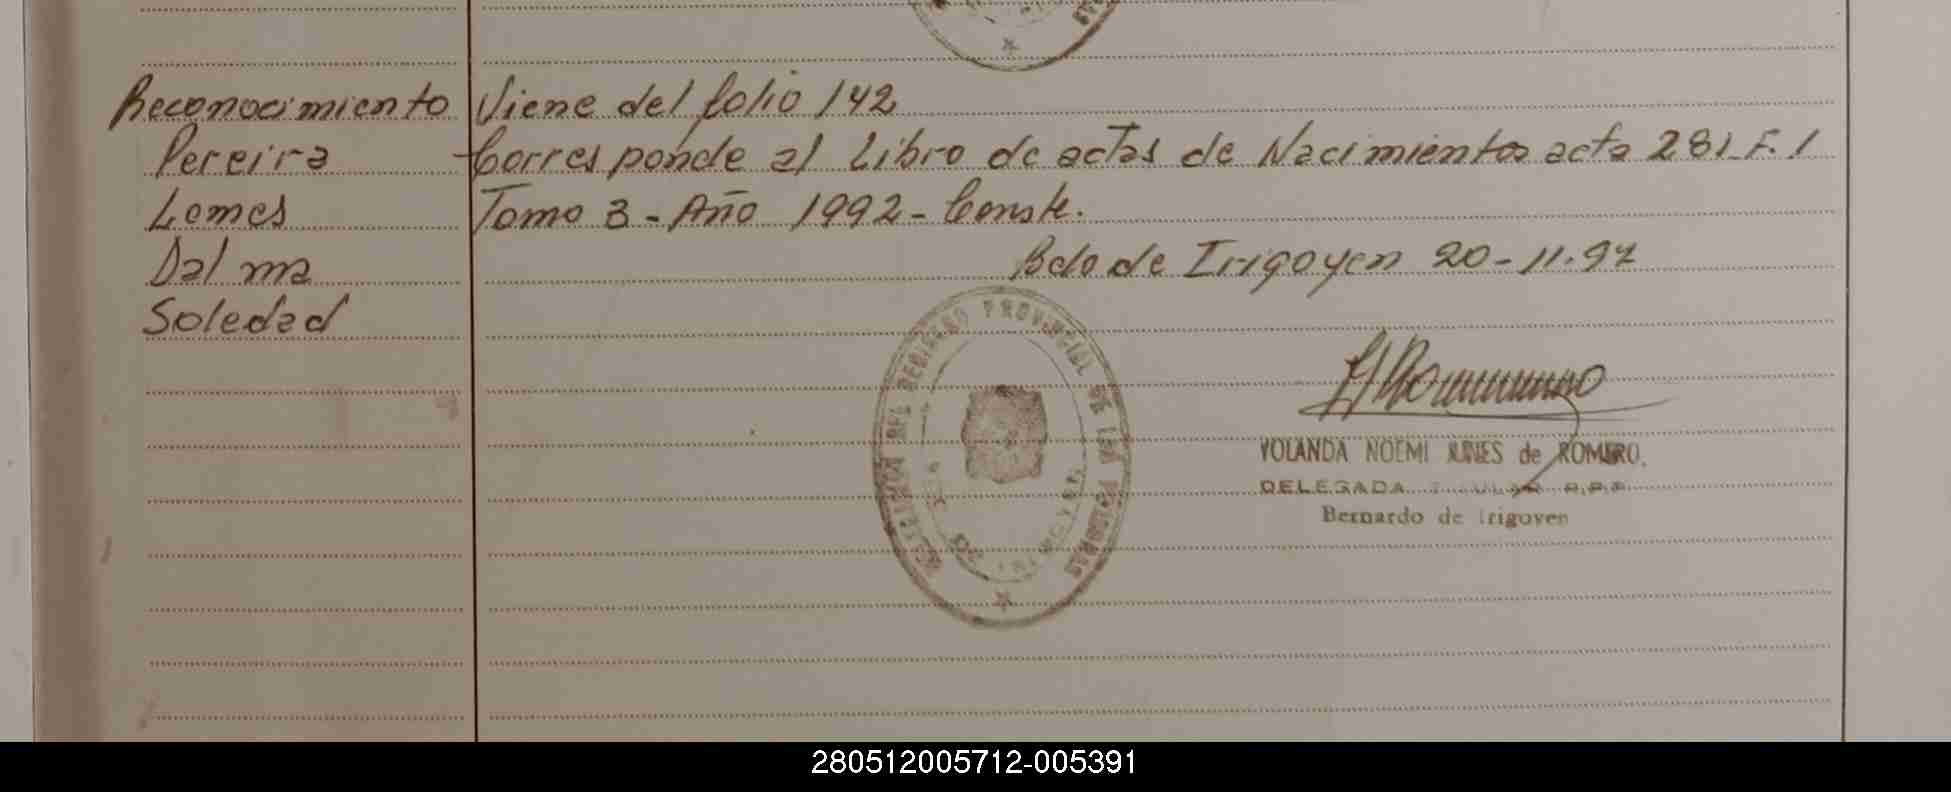 Reconocimiento Viene del folio 142
Pereira Corresponde al Libro de actas de Nacimientos acta 281_F. 1
Lemes Tomo 3 - Año 1992 - Conste.
Dalma Bdo de Irigoyen 20-11-97
Soledad
REGISTRO PROVINCIAL DE LAS PERSONAS
YOLANDA NOEMI de ROMERO.
DELEGADA
Bernardo de Irigoyen
280512005712-005391